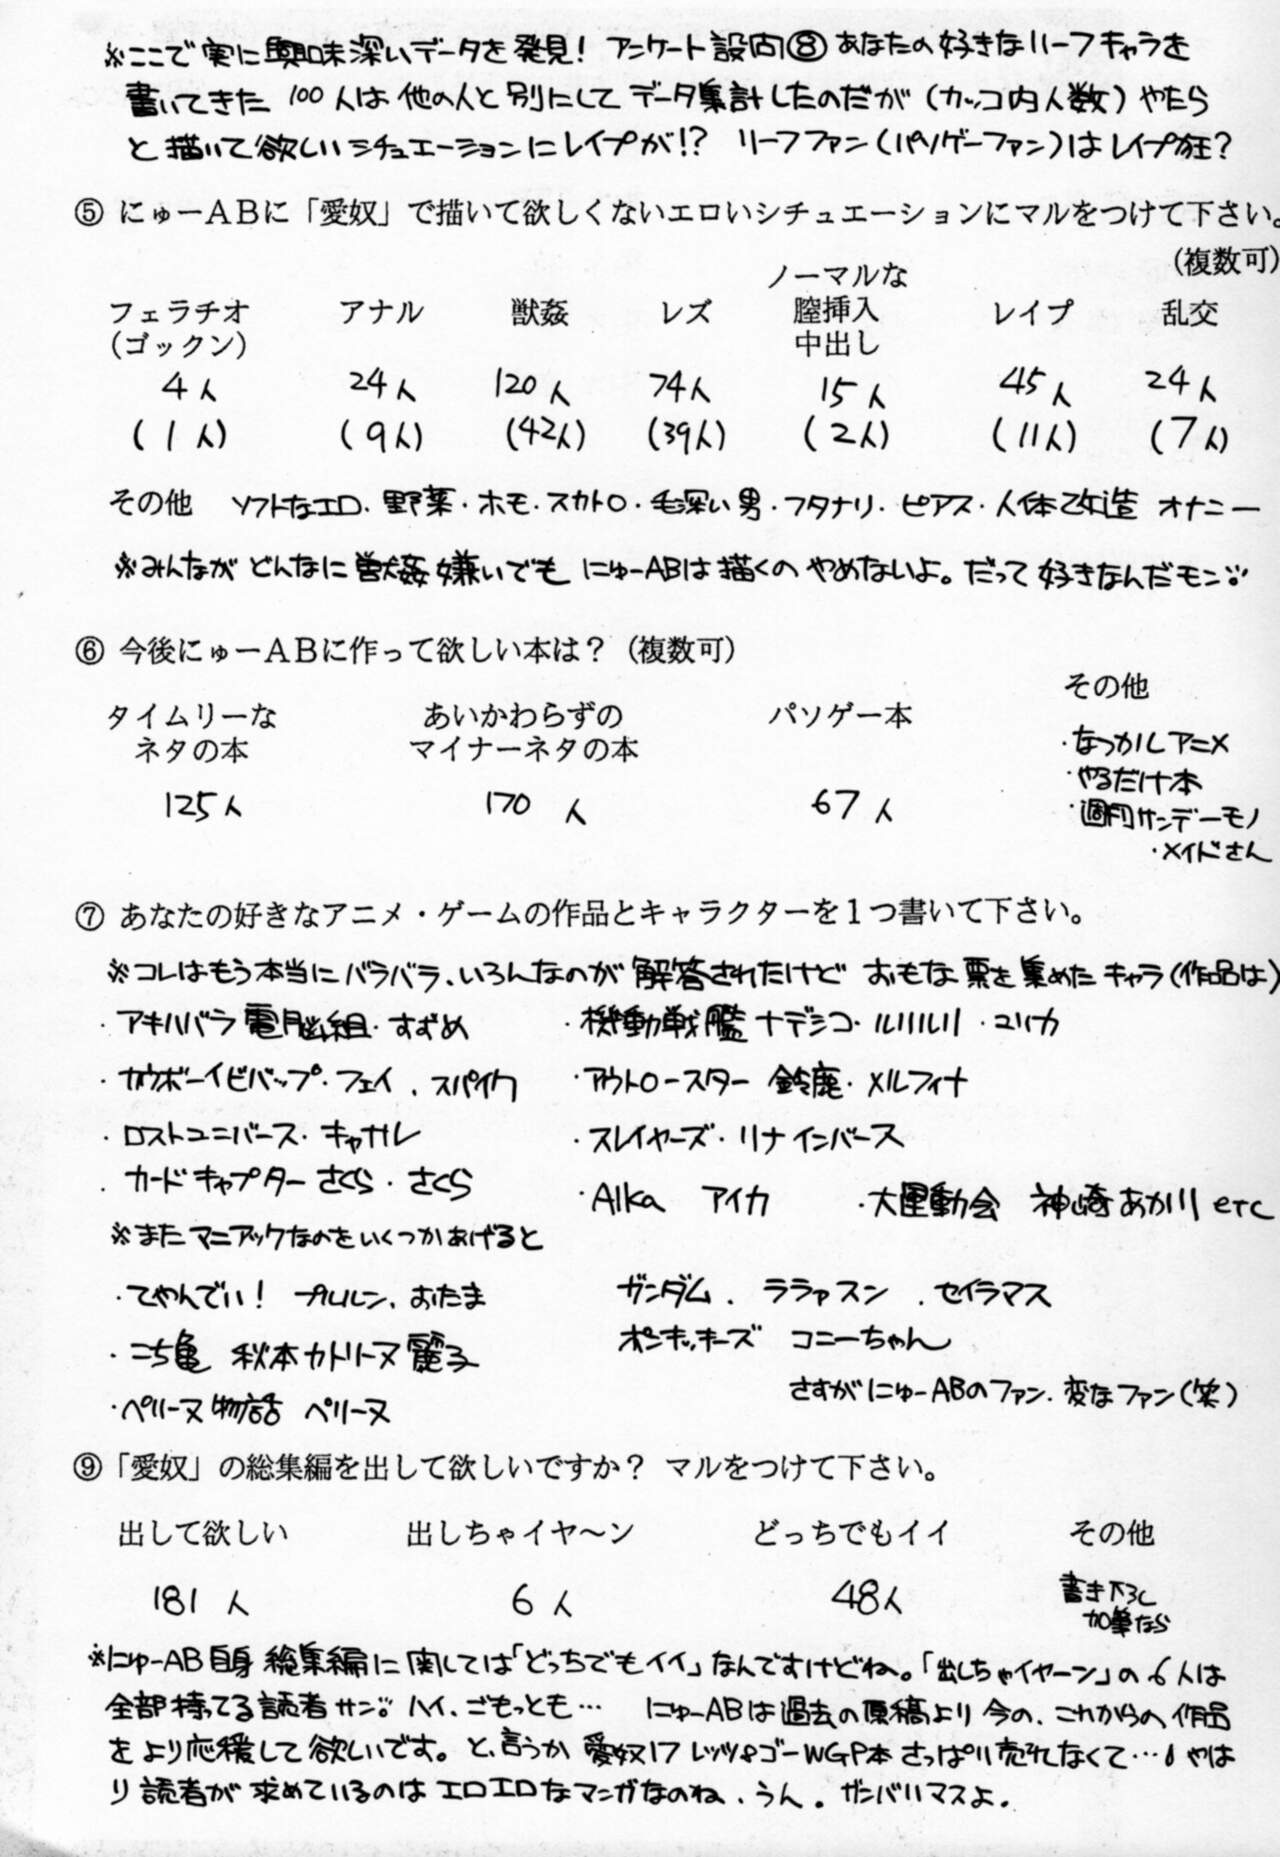 ※ここで実に興味深いデータを発見! アンケート設問⑧あなたの好きなリーフキャラを
書いてきた 100人は他の人と別にしてデータ集計したのだが(カッコ内人数)やたら
と描いて欲しいシチュエーションにレイプが!? リーフファン(パソゲーファン)はレイプ狂?
⑤ にゅーABに「愛奴」で描いて欲しくないエロいシチュエーションにマルをつけて下さい。
(複数可)
フェラチオ(ゴックン) アナル 獣姦 レズ ノーマルな膣挿入中出し レイプ 乱交
4人 24人 120人 74人 15人 45人 24人
(1人) (9人) (42人) (39人) (2人) (11人) (7人)
その他 ソフトなエロ・野薬・ホモ・スカトロ・毛深い男・フタナリ・ピアス・人体改造 オナニー
※みんながどんなに獣姦嫌いでも にゅーABは描くのやめないよ。だって好きなんだモン
⑥ 今後にゅーABに作って欲しい本は?(複数可)
タイムリーなネタの本 あいかわらずのマイナーネタの本 パソゲー本 その他
125人 170人 67人
・なつかしアニメ
・やるだけ本
・週刊サンデーモノ
・メイドさん
⑦ あなたの好きなアニメ・ゲームの作品とキャラクターを1つ書いて下さい。
※コレはもう本当にバラバラ、いろんなのが解答されたけど おもな票を集めたキャラ(作品は)
・アキハバラ電脳組・すずめ ・機動戦艦ナデシコ・ルリルリ・ユリカ
・カウボーイビバップ・フェイ、スパイク ・アウトロースター 鈴鹿・メルフィナ
・ロストユニバース・キャナル ・スレイヤーズ・リナインバース
・カードキャプターさくら・さくら ・AIka アイカ ・大運動会 神崎あかり etc
※またマニアックなのをいくつかあげると
・てやんでい! プルルン、おたま ガンダム、ララァスン、セイラマス
・こち亀 秋本カトリーヌ麗子 ポンキッキーズ コニーちゃん
・ペリーヌ物語 ペリーヌ さすがにゅーABのファン、変なファン(笑)
⑨「愛奴」の総集編を出して欲しいですか? マルをつけて下さい。
出して欲しい 出しちゃイヤ〜ン どっちでもイイ その他
181人 6人 48人 書き下ろし加筆なら
※にゅーAB自身 総集編に関しては「どっちでもイイ」なんですけどね。「出しちゃイヤーン」の6人は
全部持てる読者サン。ハイ、ごもっとも… にゅーABは過去の原稿より今の、これからの作品
をより応援して欲しいです。と、言うか愛奴17 レッツ&ゴーWGP本さっぱり売れなくて…やは
り読者が求めているのはエロエロなマンガなのね、うん。ガンバリマスよ。